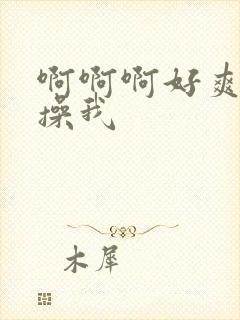 啊啊啊好爽
操我
木犀